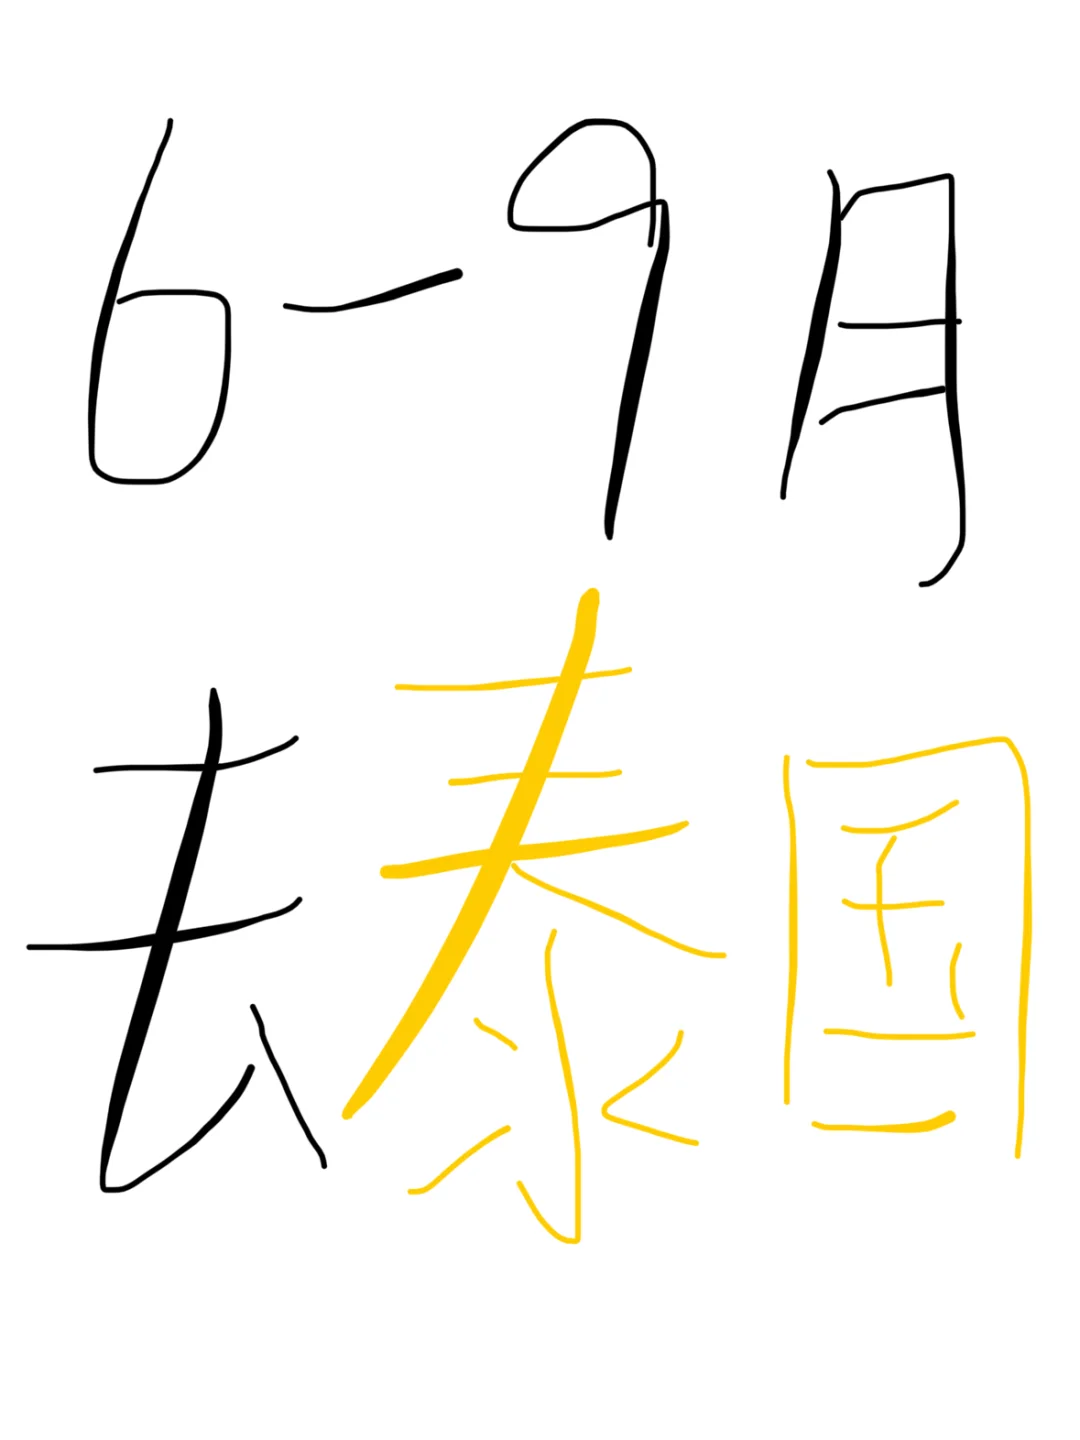 6-9月
去泰国